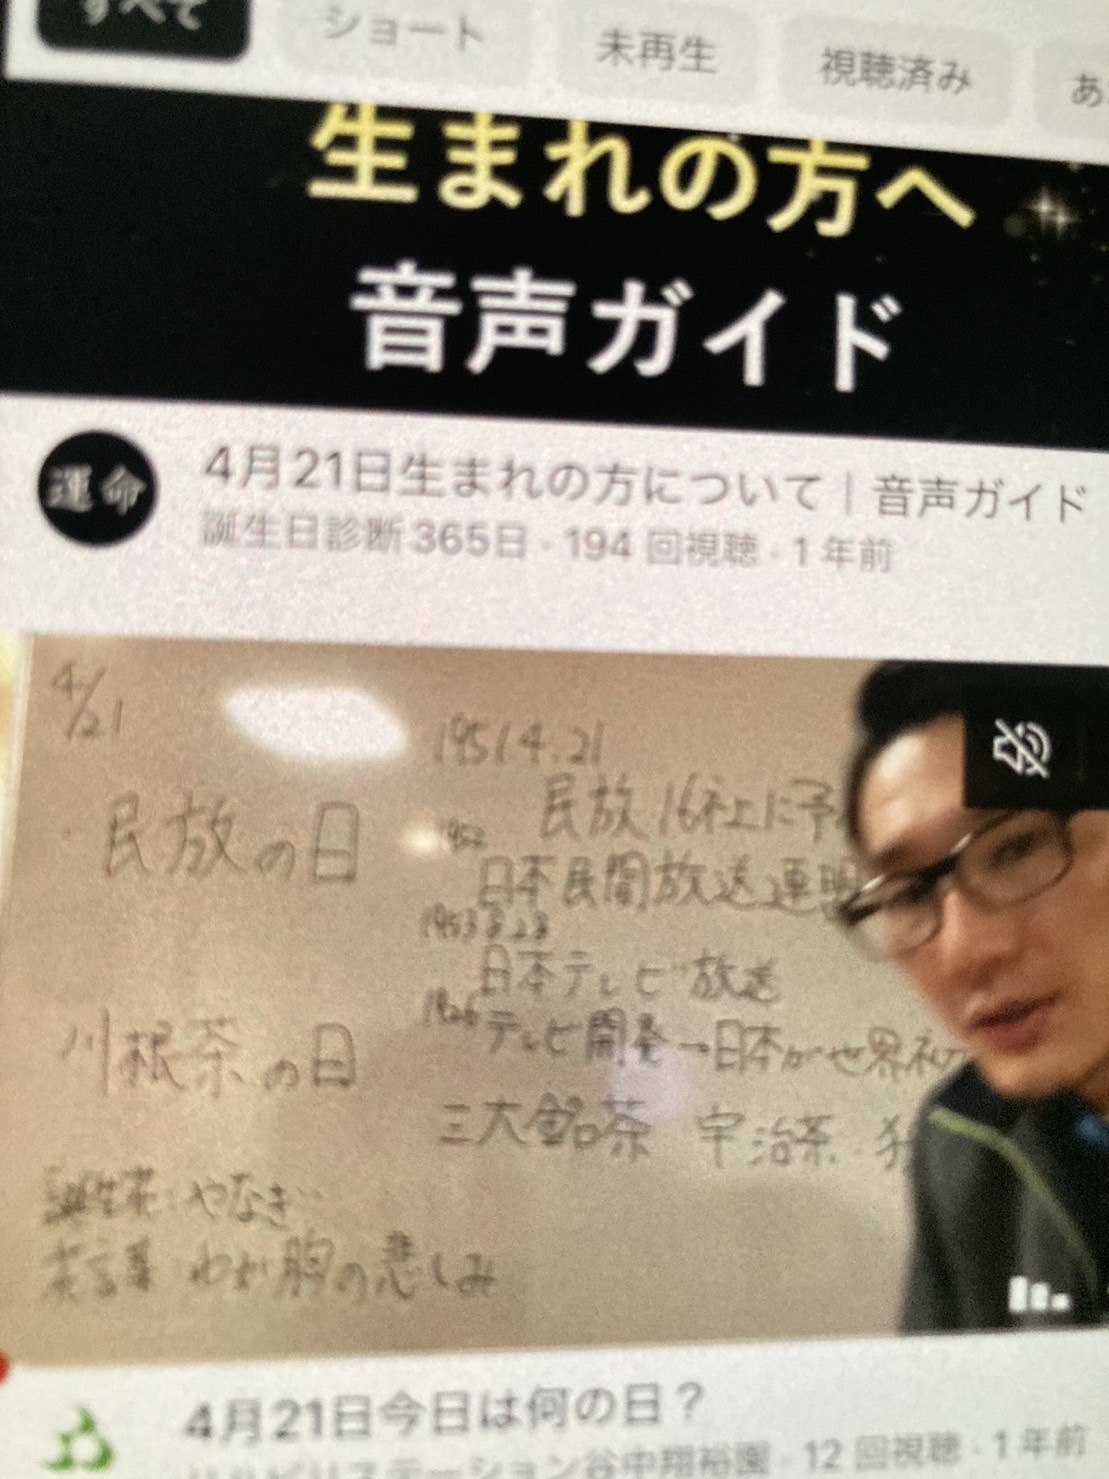 すべて
ショート
未再生
視聴済み
あ
生まれの方へ
音声ガイド
運命
4月21日生まれの方について｜音声ガイド
誕生日診断365日・194 回視聴・1 年前
4/21
民放の日
川根茶の日
誕生花：やなぎ
花言葉：わが胸の悲しみ
1951.4.21
民放16社に予
1952
日本民間放送連盟
1953 8.28
日本テレビ放送
1926
テレビ開発→日本が世界初
三大銘茶 宇治茶・狭
4月21日今日は何の日？
リハビリステーション谷中翔裕園・12 回視聴・1 年前